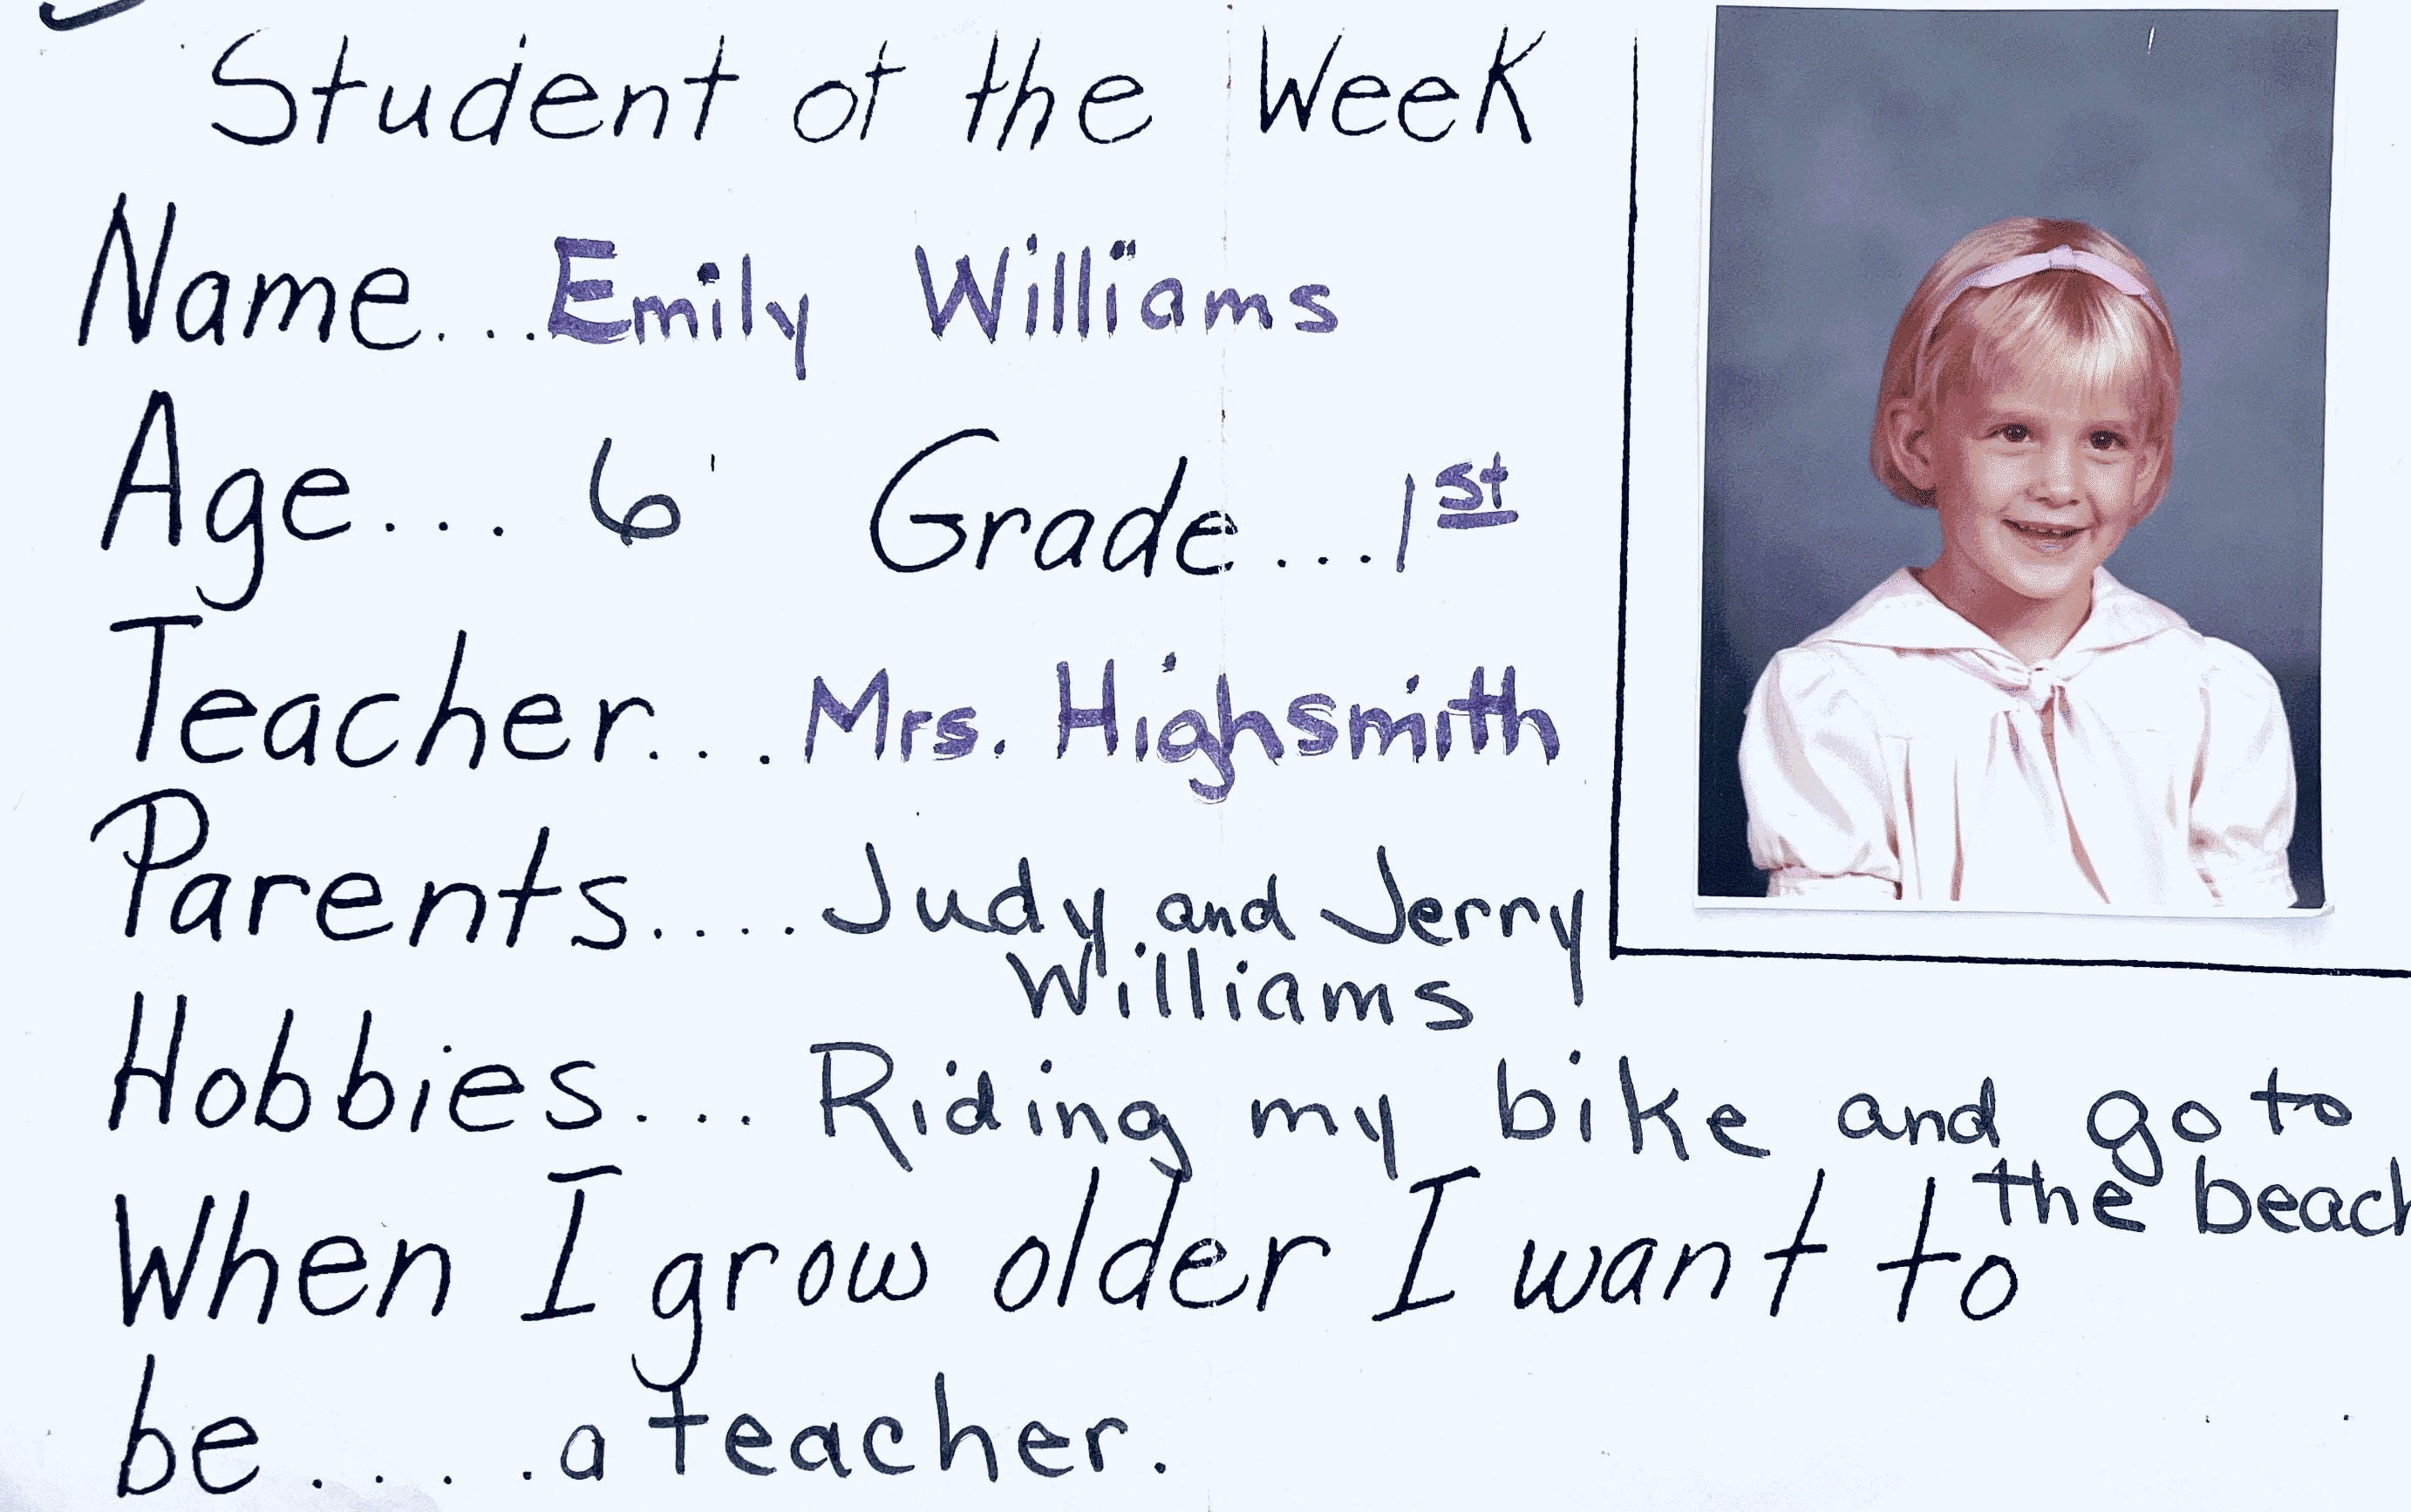 Student of the Week
Name...Emily Williams
Age... 6 Grade...1st
Teacher... Mrs. Highsmith
Parents.... Judy and Jerry
Williams
Hobbies... Riding my bike and go to
the beach
When I grow older I want to
be.....a teacher.